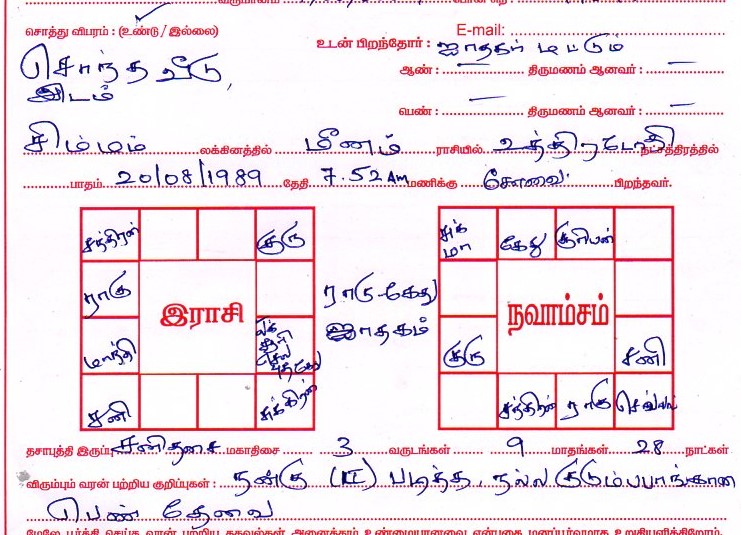 சொத்து விபரம் : (உண்டு / இல்லை)
E-mail:
உடன் பிறந்தோர் : ஜாதகர் மட்டும்
சொந்த வீடு
ஆண் : — திருமணம் ஆனவர் : —
இடம்
பெண் : — திருமணம் ஆனவர் : —
சிம்மம் லக்கினத்தில் மீனம் ராசியில் உத்திரட்டாதி நட்சத்திரத்தில்
பாதம் 20/08/1989 தேதி 7.52 Am மணிக்கு கோவை பிறந்தவர்.
சந்திரன் குரு
சுக் மா கேது சூரியன்
ராகு
இராசி
ராகு-கேது
ஜாதகம்
நவாம்சம்
மாந்தி
குரு சனி
சனி சுக்கிரன்
சந்திரன் ராகு செவ்வாய்
தசாபுத்தி இருப்பு சனி தசை மகாதிசை 3 வருடங்கள் 9 மாதங்கள் 28 நாட்கள்
விரும்பும் வரன் பற்றிய குறிப்புகள் : நன்கு படித்த, நல்ல குடும்பபாங்கான
பெண் தேவை
மேலே பூர்த்தி செய்த வரன் பற்றிய தகவல்கள் அனைத்தும் உண்மையானவை என்பதை மனப்பூர்வமாக உறுதியளிக்கிறோம்.